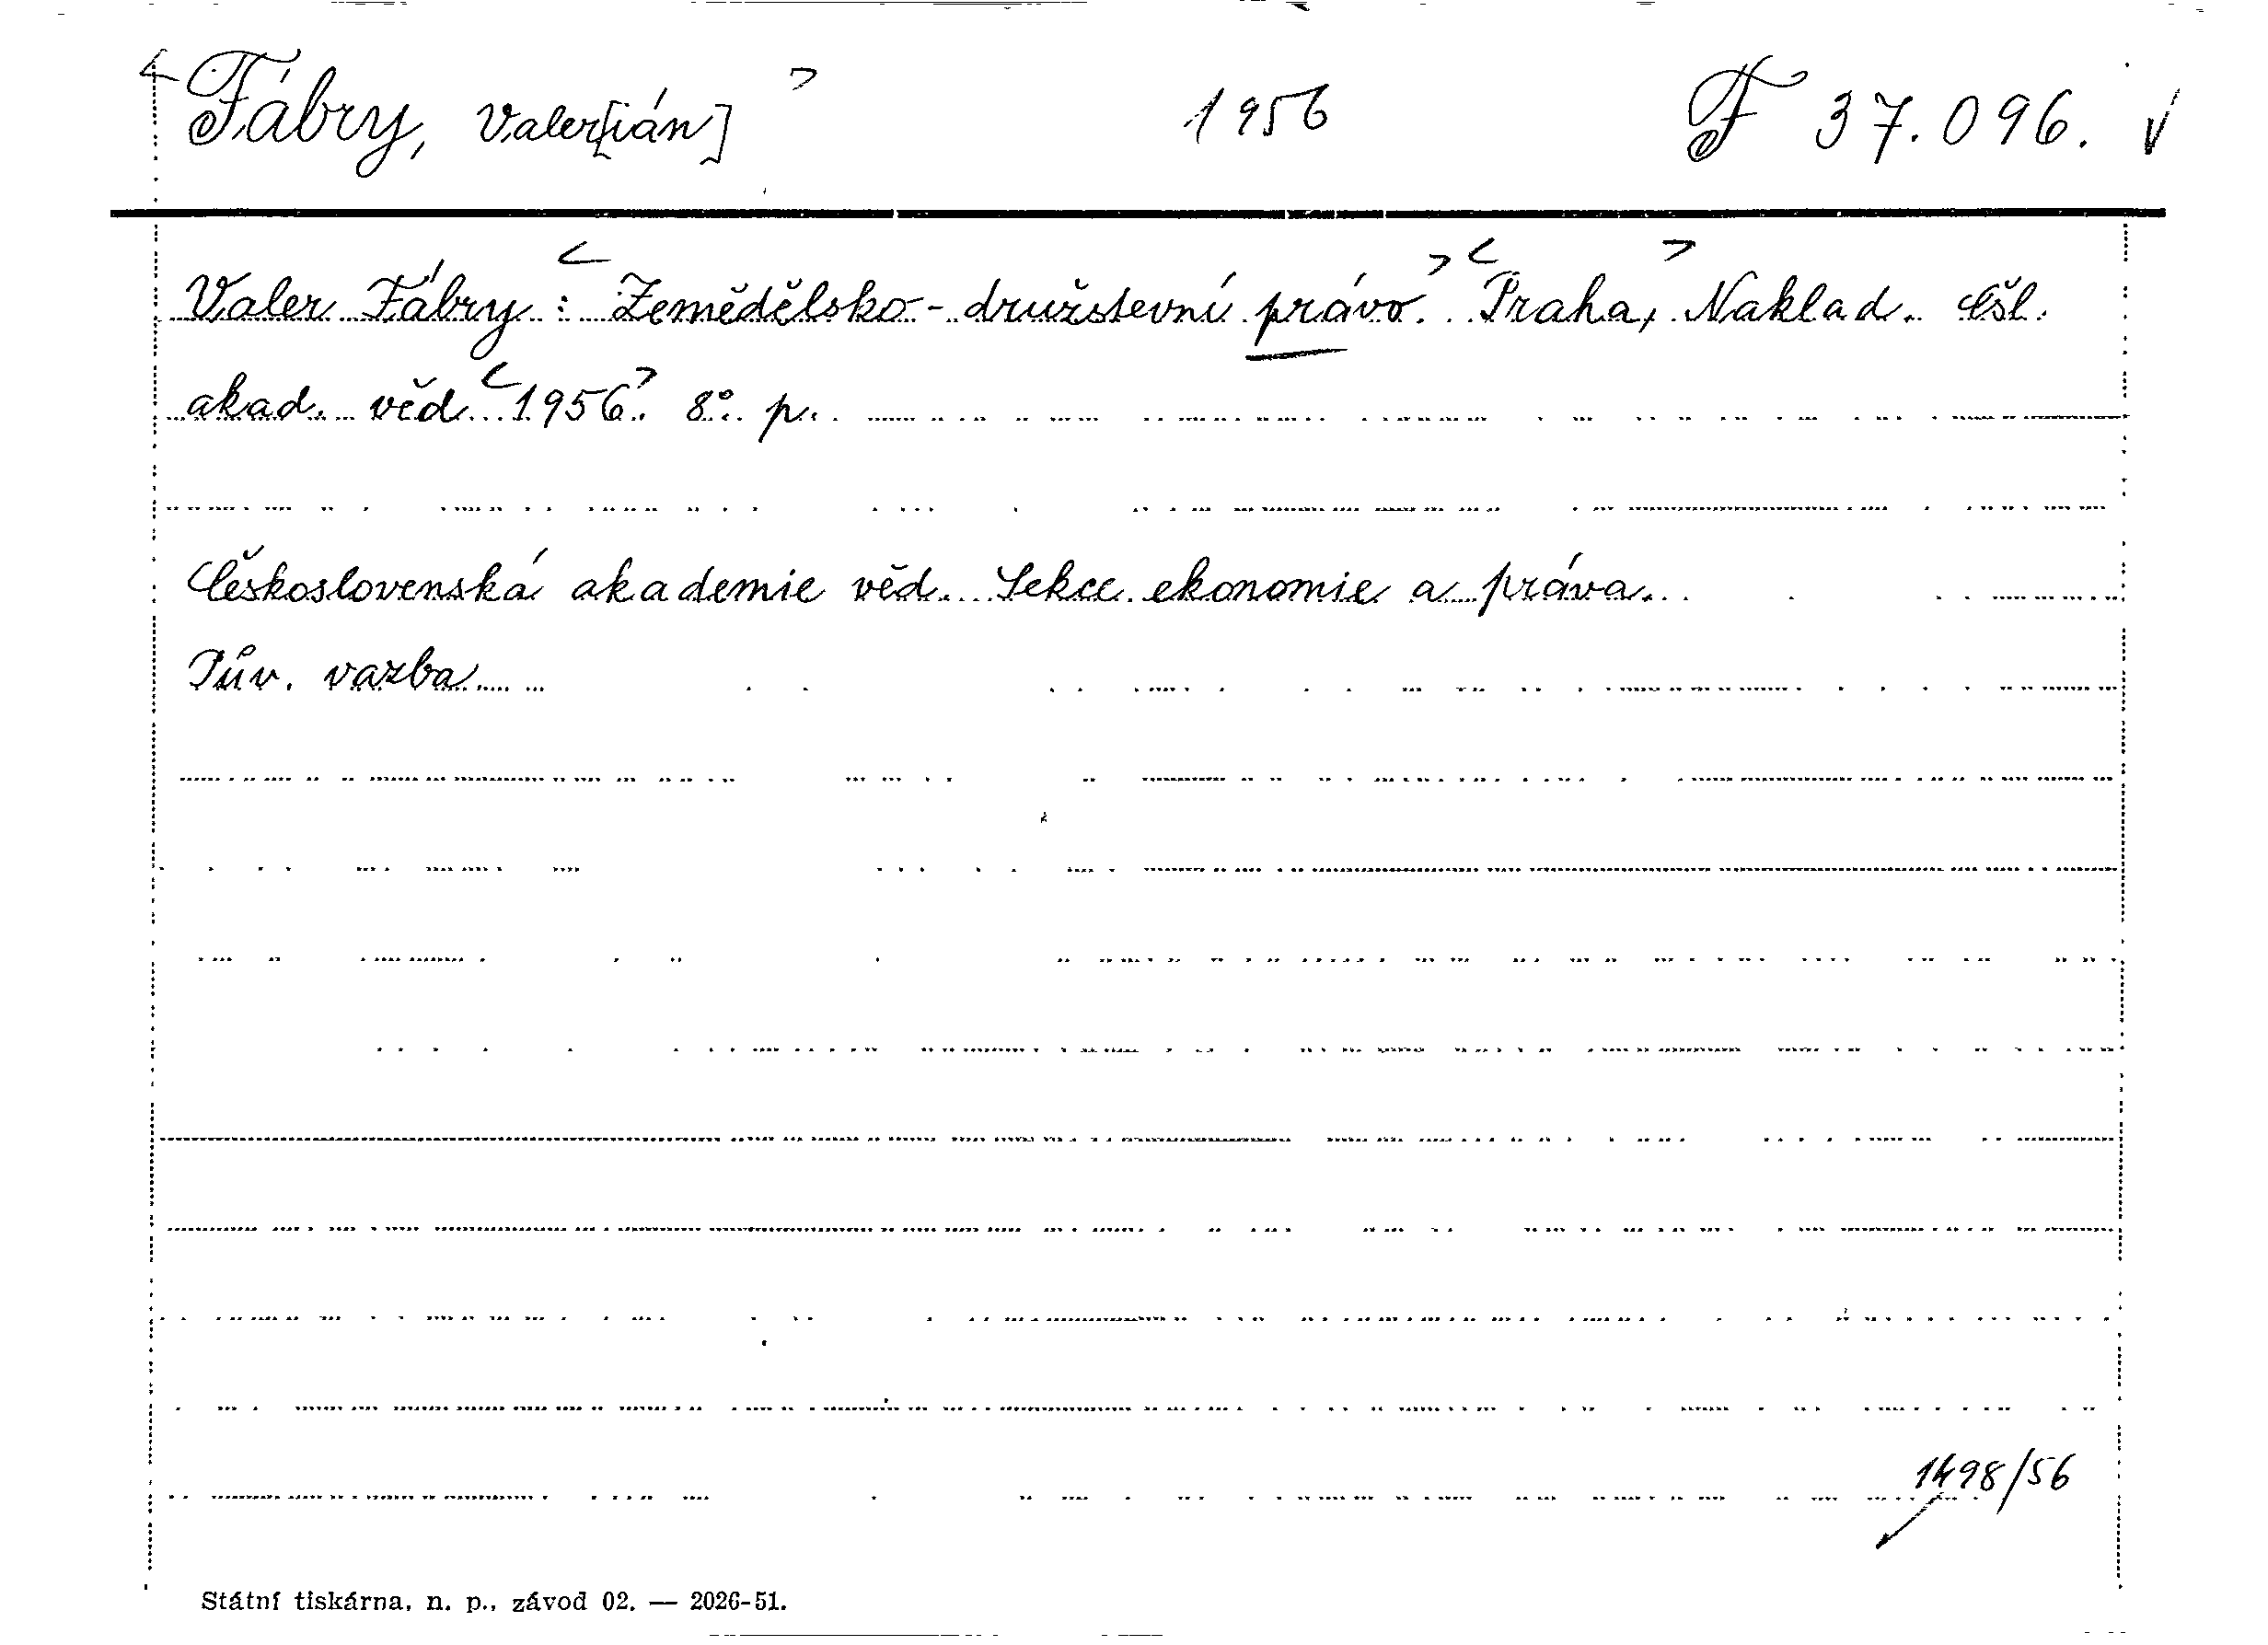 < Fábry, Valer[ián] > 1956 F 37.096. √
Valer Fábry : < Zemědělsko-družstevní právo. > < Praha, > Naklad. Čsl.
akad. věd < 1956 >. 8°. p.
Československá akademie věd. Sekce ekonomie a práva.
Pův. vazba
1498/56
Státní tiskárna, n. p., závod 02. — 2026-51.